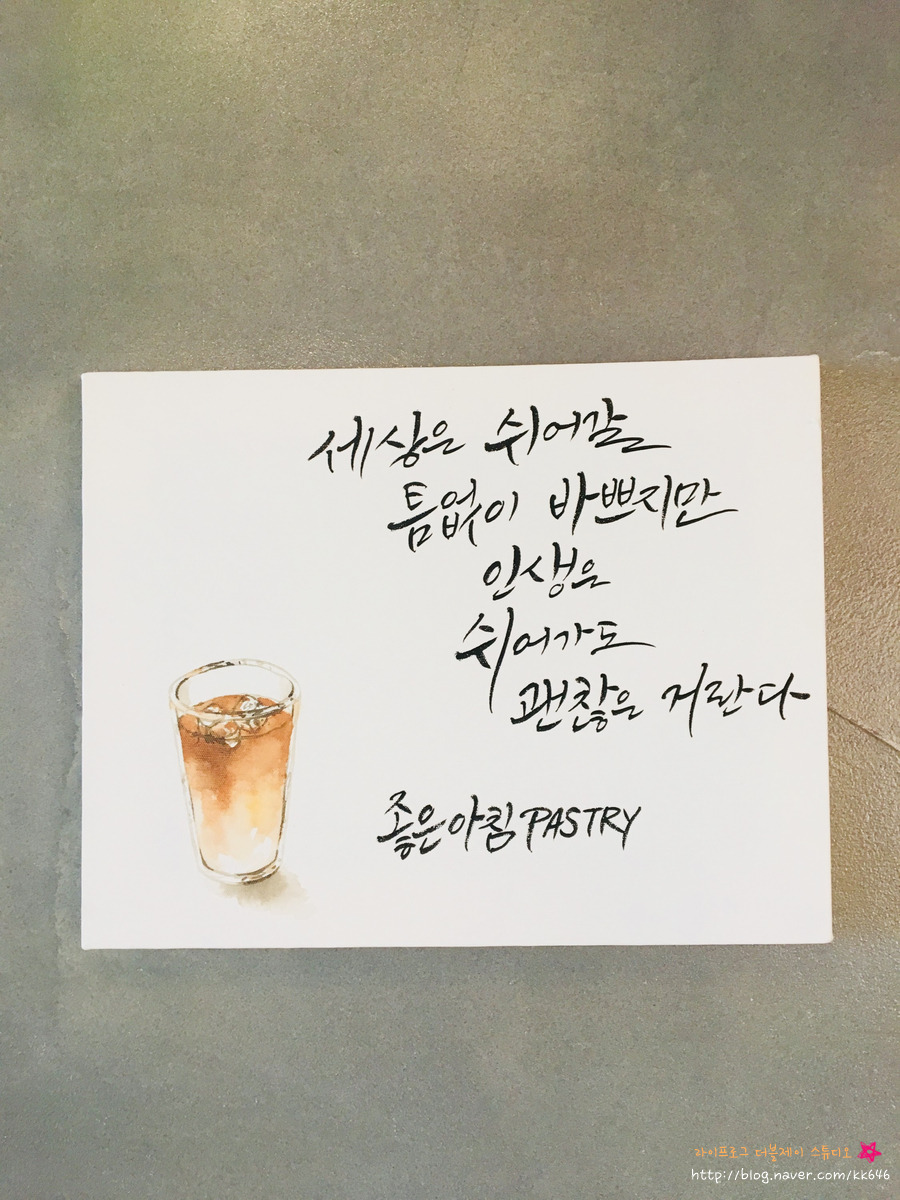 세상은 쉬어갈
틈없이 바쁘지만
인생은
쉬어가도
괜찮은 거란다
좋은아침 PASTRY
라이프로그 더블제이 스튜디오
http://blog.naver.com/kk646